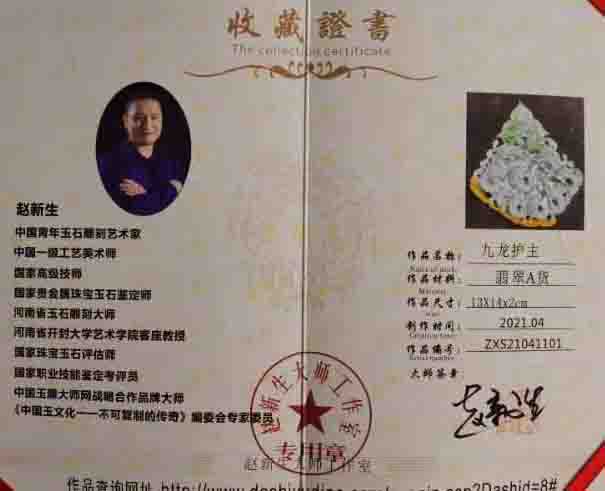 收藏證書
The collection certificate
赵新生
中国青年玉石雕刻艺术家
中国一级工艺美术师
国家高级技师
国家贵金属珠宝玉石鉴定师
河南省玉石雕刻大师
河南省开封大学艺术学院客座教授
国家珠宝玉石评估师
国家职业技能鉴定考评员
中国玉雕大师网战略合作品牌大师
《中国玉文化——不可复制的传奇》编委会专家委员
作品名称: 九龙护主
作品材料: 翡翠A货
Material
作品尺寸: 13X14x2cm
制作时间: 2021.04
作品编号: ZXS21041101
大师签章:
赵新生
赵新生大师工作室
专用章
赵新生大师工作室
作品查询网址